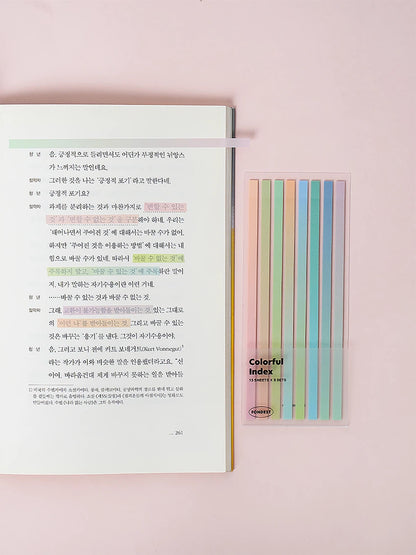 청 년 음, 긍정적으로 들리면서도 어딘가 부정적인 뉘앙스
가 느껴지는 말인데요.
철학자 그러한 것을 나는 '긍정적 포기'라고 말한다네.
청 년 긍정적 포기요?
철학자 과제를 분리하는 것과 마찬가지로 '변할 수 있는
것'과 '변할 수 없는 것'을 구분해야 하네. 우리는
'태어나면서 주어진 것'에 대해서는 바꿀 수가 없어.
하지만 '주어진 것을 이용하는 방법'에 대해서는 내
힘으로 바꿀 수가 있네. 따라서 '바꿀 수 없는 것'에
주목하지 말고, '바꿀 수 있는 것'에 주목하란 말이
지. 내가 말하는 자기수용이란 이런 거네.
청 년 ……바꿀 수 있는 것과 바꿀 수 없는 것.
철학자 그래. 교환이 불가능함을 받아들이는 것. 있는 그대로
의 '이런 나'를 받아들이는 것. 그리고 바꿀 수 있는
것은 바꾸는 '용기'를 낸다. 그것이 자기수용이야.
청 년 음, 그러고 보니 전에 커트 보네거트(Kurt Vonnegut)
라는 작가가 이와 비슷한 말을 인용했더라고요. "신
이여, 바라옵건대 제게 바꾸지 못하는 일을 받아들
... 261
Colorful
Index
15 SHEETS X 8 SETS
FONDEST